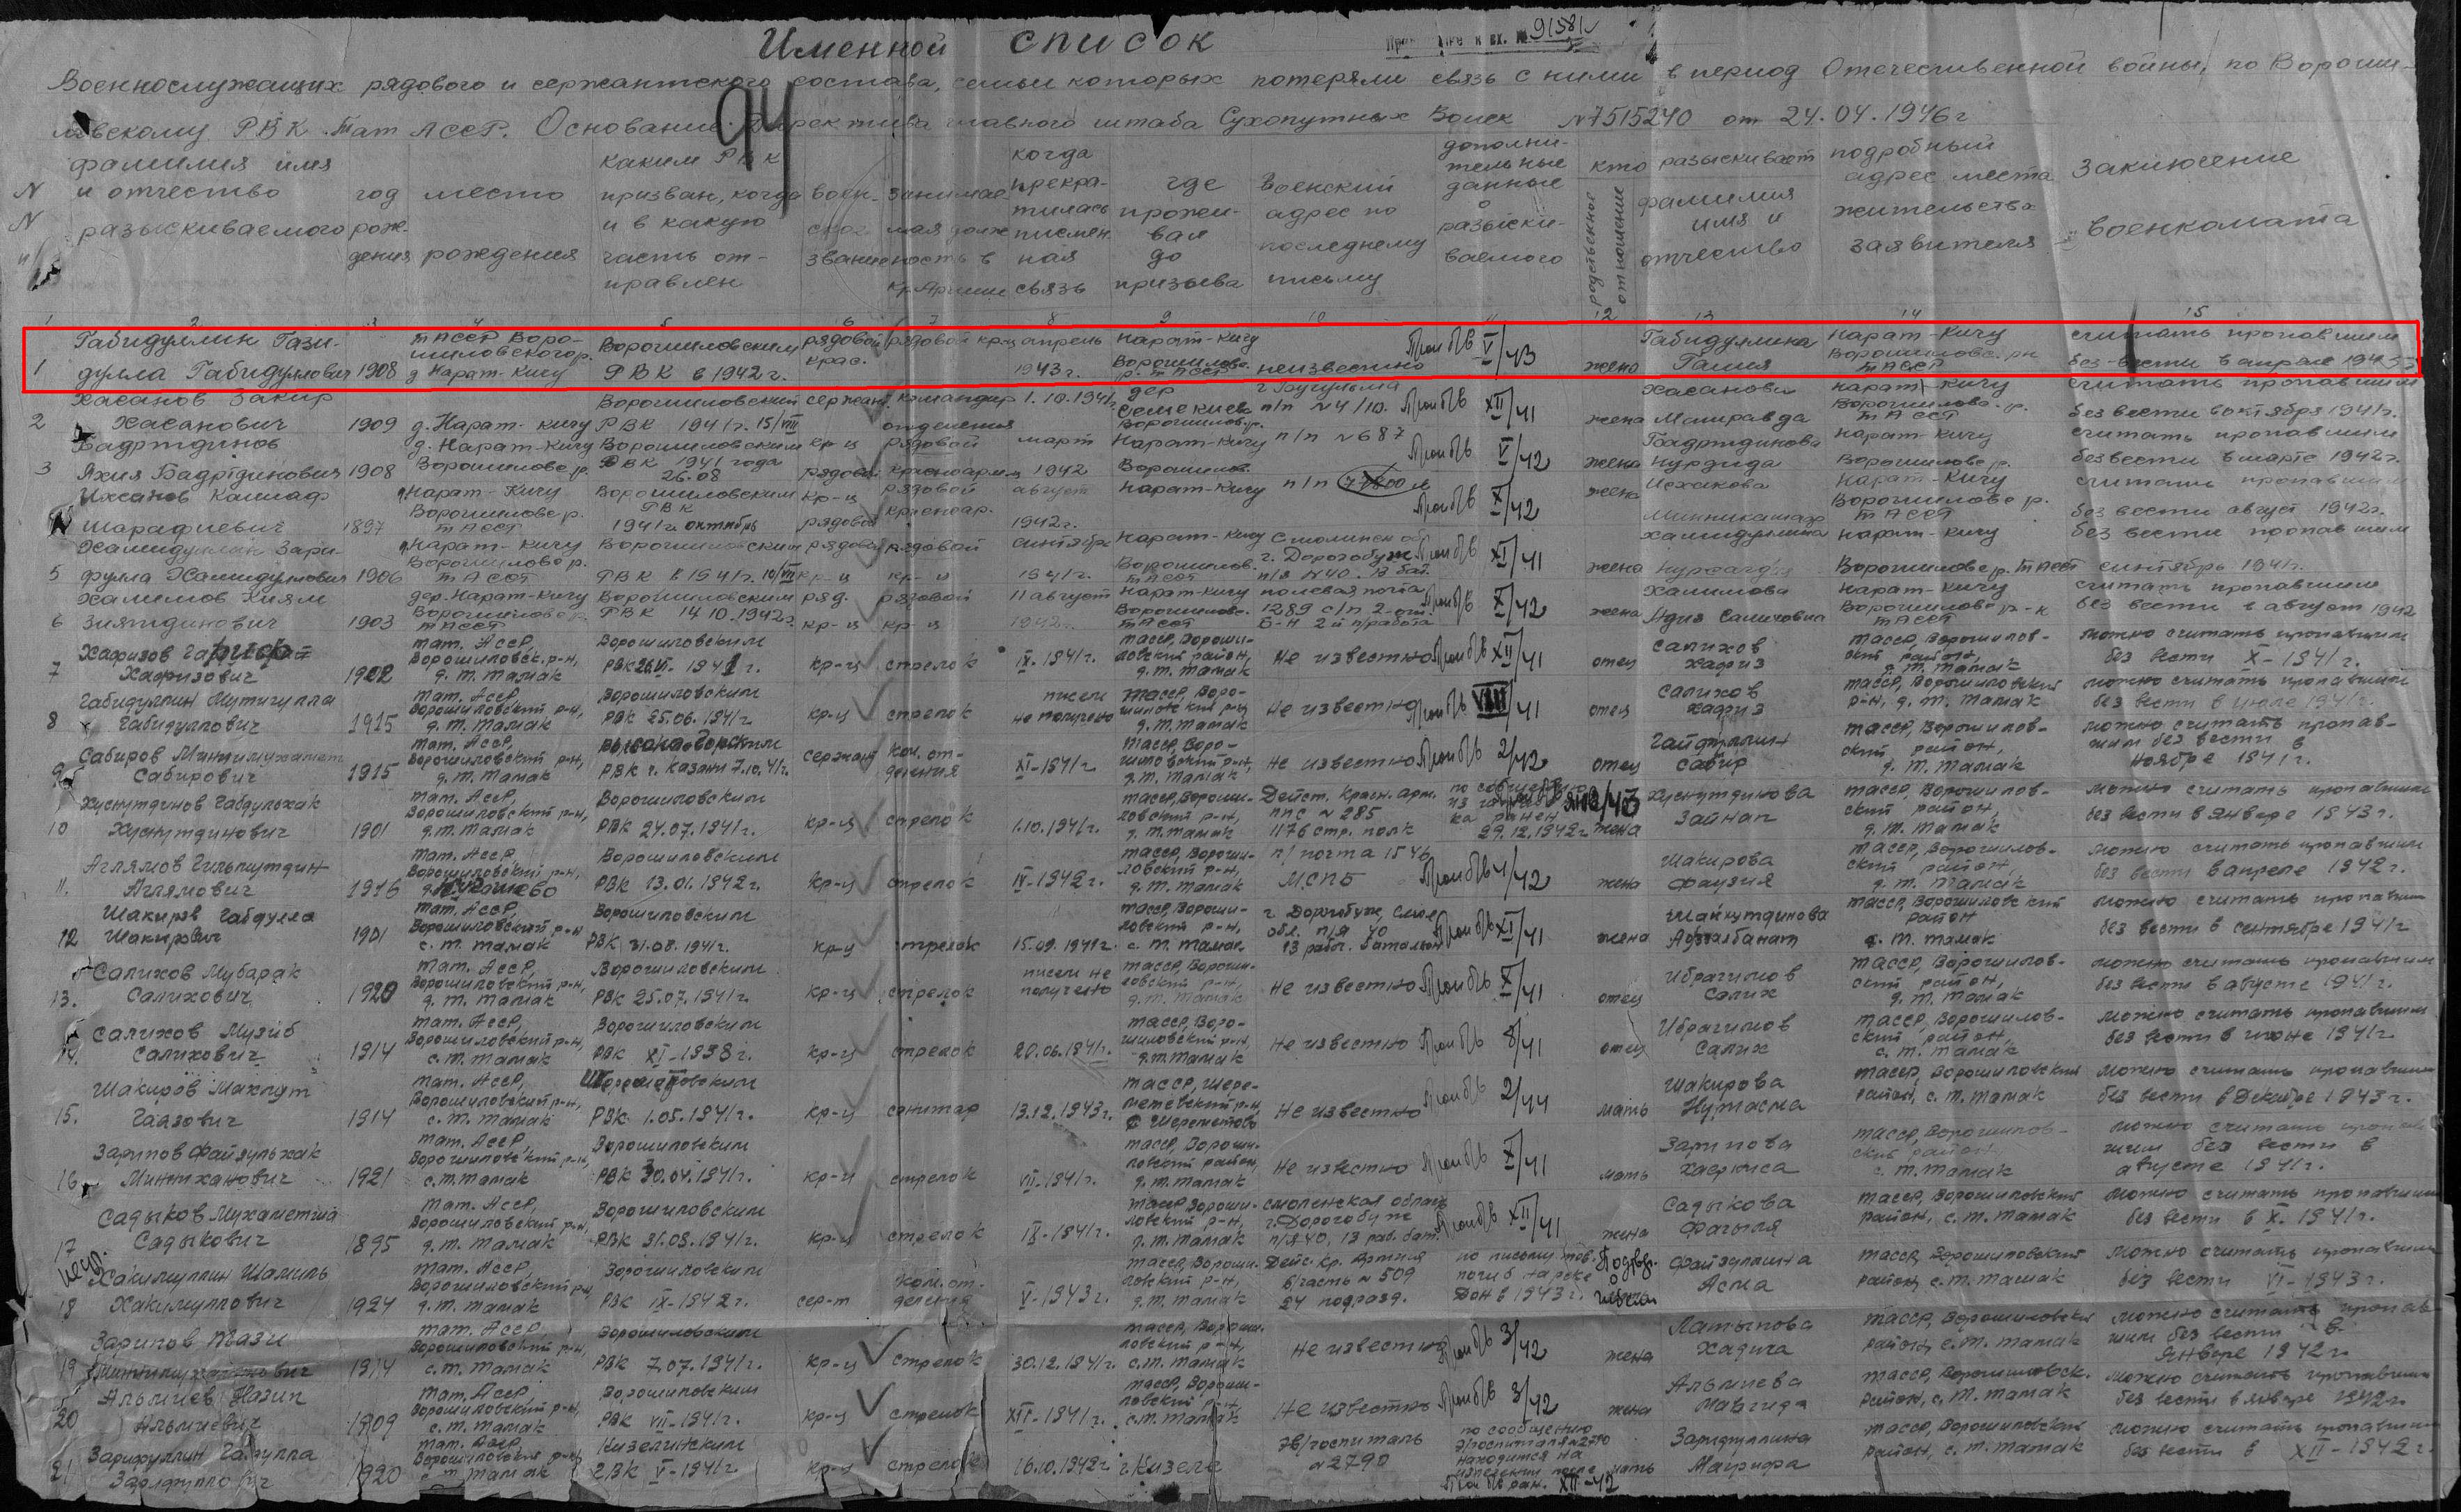 Именной список
№ 91581
Военнослужащих рядового и сержантского состава, семьи которых потеряли связь с ними в период Отечественной войны, по Вороши-
ловскому РВК Тат АССР. Основание: Директива главного штаба Сухопутных Войск №7515240 от 24.04.1946 г
94
N N п/п
фамилия имя и отчество разыскиваемого
год рождения
место рождения
каким РВК призван, когда и в какую часть отправлен
воен. звание
занимаемая должность в кр. Армии
когда прекратилась письменная связь
где проживал до призыва
Воинский адрес по последнему письму
дополнительные данные о разыскиваемого
кто разыскивает
родственное отношение
фамилия имя и отчество
подробный адрес места жительства заявителя
Заключение военкомата
1 2 3 4 5 6 7 8 9 10 11 12 13 14 15
1 Габидуллин Гази-дулла Габидуллович 1908 ТАССР Воро-шиловского р. д Нарат-Кичу Ворошиловским РВК в 1942 г. рядовой крас. рядовой кр-ц апрель 1943 г. Нарат-Кичу Ворошилов. р. ТАССР неизвестно Проп б/в V/43 жена Габидуллина Галия Нарат-Кичу Ворошиловс. рн ТАССР считать пропавшим без вести в апреле 1943
2 Хасанов Закир Хасанович 1909 д. Нарат-Кичу Ворошиловский РВК 1941 г. 15/VIII сержант командир отделения 1.10.1941 дер Семекиево Ворошилов.р. г. Бугульма п/п №4/10. Проп б/в XII/41 жена Хасанова Нарат-Кичу Ворошиловс. р. ТАССР считать пропавшим без вести в октября 1941 г.
3 Бадртдинов Яхия Бадртдинович 1908 д. Нарат-Кичу Ворошиловс р. Ворошиловским РВК 1941 года 26.08 кр-ц рядовой рядовой красноарм. март 1942 Нарат-Кичу Ворошилов. п/п №687 Проп б/в V/42 жена Бадртдинова Нурдида Нарат-Кичу Ворошиловс р. считать пропавшим без вести в марте 1942 г.
Ихсанов Шарафиевич 1897 Нарат-Кичу Ворошиловс р. ТАССР Ворошиловским РВК 1941 г. октябрь кр-ц рядовой рядовой красноар. август 1942 г. Нарат-Кичу п/п Проп б/в X/42 жена Исхакова Нарат-Кичу Ворошиловс р. ТАССР считать пропавшим без вести август 1942 г.
5 Хамидуллин Зари-фулла Хамидуллович 1906 Нарат-Кичу Ворошиловс р. ТАССР Ворошиловским РВК в 1941 г. 10/VIII рядовой кр-ц рядовой кр-ц сентябре 1941 г. Нарат-Кичу Ворошилов. ТАССР Смоленск обл г. Дорогобуж п/я №40. 13 бат. Проп б/в XI/41 жена Хамидуллина Нарат-Кичу Ворошиловс р. ТАССР без вести пропавшим сентябрь 1941 г.
6 Халимов Хиям Зиятдинович 1903 дер. Нарат-Кичу Ворошиловс р. ТАССР Ворошиловским РВК 14 10.1942 г. ряд. кр-ц рядовой кр-ц 11 август 1942 г. Нарат-Кичу Ворошилов. ТАССР полевая почта 1289 с/п 2-от. Б-н 2й п/работа Проп б/в X/42 жена Халимова Адия Салиховна Нарат-Кичу Ворошиловс р-к ТАССР считать пропавшим без вести в август 1942
7 Хафизов Гариф Хафизович 1902 Тат. АССР, Ворошиловск. р-н, д. Т. Тамак Ворошиловским РВК 26.VI. 1941 г. кр-ц стрелок IX.-1941 г. ТАССР, Вороши-ловский район, д. Т. Тамак Не известно Проп б/в XII/41 отец Салихов Хафиз ТАССР, Ворошилов-ский район, д. Т. Тамак можно считать пропавшим без вести X-1941 г.
8 Габидуллин Мутигулла Габидуллович 1915 Тат. АССР, Ворошиловский р-н, д. Т. Тамак Ворошиловским РВК 25.06.1941 г кр-ц стрелок писем не получено ТАССР, Воро-шиловский р-н д. Т. Тамак Не известно Проп б/в VIII/41 отец Салихов Хафиз ТАССР, Ворошиловский р-н, д. Т. Тамак можно считать пропавшим без вести в июле 1941 г.
9 Сабиров Миннимухамет Сабирович 1915 Тат. АССР, Ворошиловский р-н, д. Т. Тамак РВК г. Казани 7.10.41 г. сержант ком. от-деления XI-1941 г ТАССР, Воро-шиловский р-н, д. Т. Тамак Не известно Проп б/в 2/42 отец Сабир ТАССР, Ворошилов-ский район, д. Т. Тамак можно считать пропав-шим без вести в ноябре 1941 г.
10 Хуснутдинов Габдулхак Хуснутдинович 1901 Тат. АССР, Ворошиловский р-н, д. Т. Тамак Ворошиловским РВК 24.07.1941 г. кр-ц стрелок 1.10.1941 г. ТАССР, Вороши-ловский р-н, д. Т. Тамак Дейст. Красн. Арм. ппс №285 1176 стр. полк 29.12.1942 г жена Хуснутдинова Зайнап ТАССР, Ворошилов-ский район, д. Т. Тамак можно считать пропавшим без вести в Январе 1943 г.
11. Аглямов Гильмутдин Аглямович 1916 Тат. АССР, Ворошиловский р-н, Ворошиловским РВК 13.01.1942 г. кр-ц стрелок IV-1942 г. ТАССР, Вороши-ловский р-н, д. Т. Тамак п/почта 1546 МСПБ Проп б/в 4/42 жена Шакирова Фаузия ТАССР, Ворошилов-ский район, д. Т. Тамак можно считать пропавшим без вести в апреле 1942 г.
12 Шакиров Габдулла Шакирович 1901 Тат. АССР, Ворошиловский р-н с. Т. Тамак Ворошиловским РВК 31.08.1941 г. кр-ц стрелок 15.09.1941 г. ТАССР, Вороши-ловский р-н, с. Т. Тамак г. Дорогобуж, Смол. обл. п/я 40 13 рабоч. батальон Проп б/в XI/41 жена Шайхутдинова ТАССР, Ворошиловский район с. Т. Тамак можно считать пропавшим без вести в сентябре 1941 г
13. Салихов Мубарак Салихович 1920 Тат. АССР, Ворошиловский р-н, д. Т. Тамак Ворошиловским РВК 25.07.1941 г. кр-ц стрелок писем не получено ТАССР, Вороши-ловский р-н, д. Т. Тамак Не известно Проп б/в X/41 отец Ибрагимов Салих ТАССР, Ворошилов-ский район, д. Т. Тамак можно считать пропавшим без вести в августе 1941 г.
14. Салихов Музиб Салихович 1914 Тат. АССР, Ворошиловский р-н, с. Т. Тамак Ворошиловским РВК XI-1938 г. кр-ц стрелок 20.06.1941 г. ТАССР, Воро-шиловский р-н, д. Т. Тамак Не известно Проп б/в 8/41 отец Ибрагимов Салих ТАССР, Ворошилов-ский район, с. Т. Тамак можно считать пропавшим без вести в июне 1941 г
15. Шакиров Махмут Гаязович 1914 Тат. АССР, Ворошиловский р-н, с. Т. Тамак РВК 1.05.1941 г. кр-ц санитар 13.12.1943 г. ТАССР, Шере-метевский р-н, с Шереметево Не известно Проп б/в 2/44 мать Шакирова ТАССР, Ворошиловский район, с. Т. Тамак можно считать пропавшим без вести в Декабре 1943 г.
16 Зарипов Файзулхак Минниханович 1921 Тат. АССР, Ворошиловский р-н, с. Т. Тамак Ворошиловским РВК 30.04.1941 г. кр-ц стрелок VII-1941 г. ТАССР, Вороши-ловский район, д. Т. Тамак Не известно Проп б/в X/41 мать Зарипова ТАССР, Ворошилов-ский район с. Т. Тамак можно считать пропав-шим без вести в августе 1941 г.
17 Садыков Мухаметша Садыкович 1895 Тат. АССР, Ворошиловский р-н, д. Т. Тамак Ворошиловским РВК 31.08.1941 г. кр-ц стрелок IX-1941 г. ТАССР Вороши-ловский р-н, д. Т. Тамак Смоленская область г. Дорогобуж п/я 40, 13 раб. бат. Проп б/в XII/41 жена Садыкова ТАССР, Ворошиловский район, с. Т. Тамак можно считать пропавшим без вести в X. 1941 г.
18 Хакимуллин Шамиль Хакимуллович 1924 Тат. АССР, Ворошиловский р-н д. Т. Тамак Ворошиловским РВК IX-1942 г. сер-т ком. от-деления V-1943 г. ТАССР, Вороши-ловский р-н, д. Т. Тамак Дейс. Кр. Армия в/часть №509 24 подразд. по письму тов. погиб на реке Дон в 1943 г. Файзуллина Асма ТАССР, Ворошиловский район, с. Т. Тамак можно считать пропавшим без вести VI-1943 г.
19 Зарипов Тази 1914 Тат. АССР, Ворошиловский р-н, с. Т. Тамак Ворошиловским РВК 7.07.1941 г. кр-ц стрелок 30.12.1941 г. ТАССР, Вороши-ловский р-н, с. Т. Тамак Не известно Проп б/в 3/42 жена Латыпова Хадича ТАССР, Ворошиловский район, с. Т. Тамак можно считать пропав-шим без вести в Январе 1942 г.
20 Альмиев Назип Альмиевич 1909 Тат. АССР, Ворошиловский р-н, с. Т. Тамак Ворошиловским РВК VII-1941 г. кр-ц стрелок XII-1941 г. ТАССР, Вороши-ловский р-н с. Т. Тамак Не известно Проп б/в 3/42 жена Альмиева ТАССР, Ворошиловск. район, с. Т. Тамак можно считать пропавшим без вести в январе 1942 г.
21 Зарифуллин Гарифулла Зарифуллович 1920 Тат. АССР, Ворошиловский р-н с. Т. Тамак Кизелинским РВК V-1941 г. кр-ц стрелок 16.10.1942 г г. Кизел эв/госпиталь №2790 по сообщению э/госпиталя №2790 находится на излечении после мать Зарифуллина ТАССР, Ворошиловский район, с. Т. Тамак можно считать пропавшим без вести в XII-1942 г.
XII-42